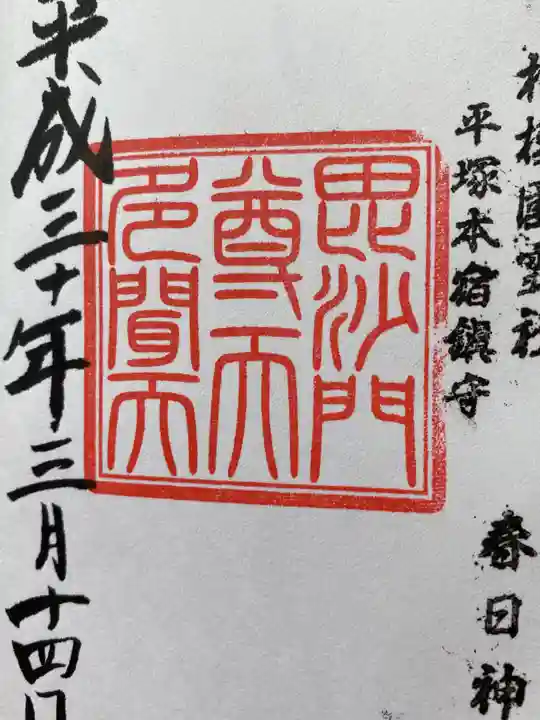 相模国霊社
平塚本宿鎮守
春日神
毘沙門
尊天
多聞天
平成三十年三月十四日